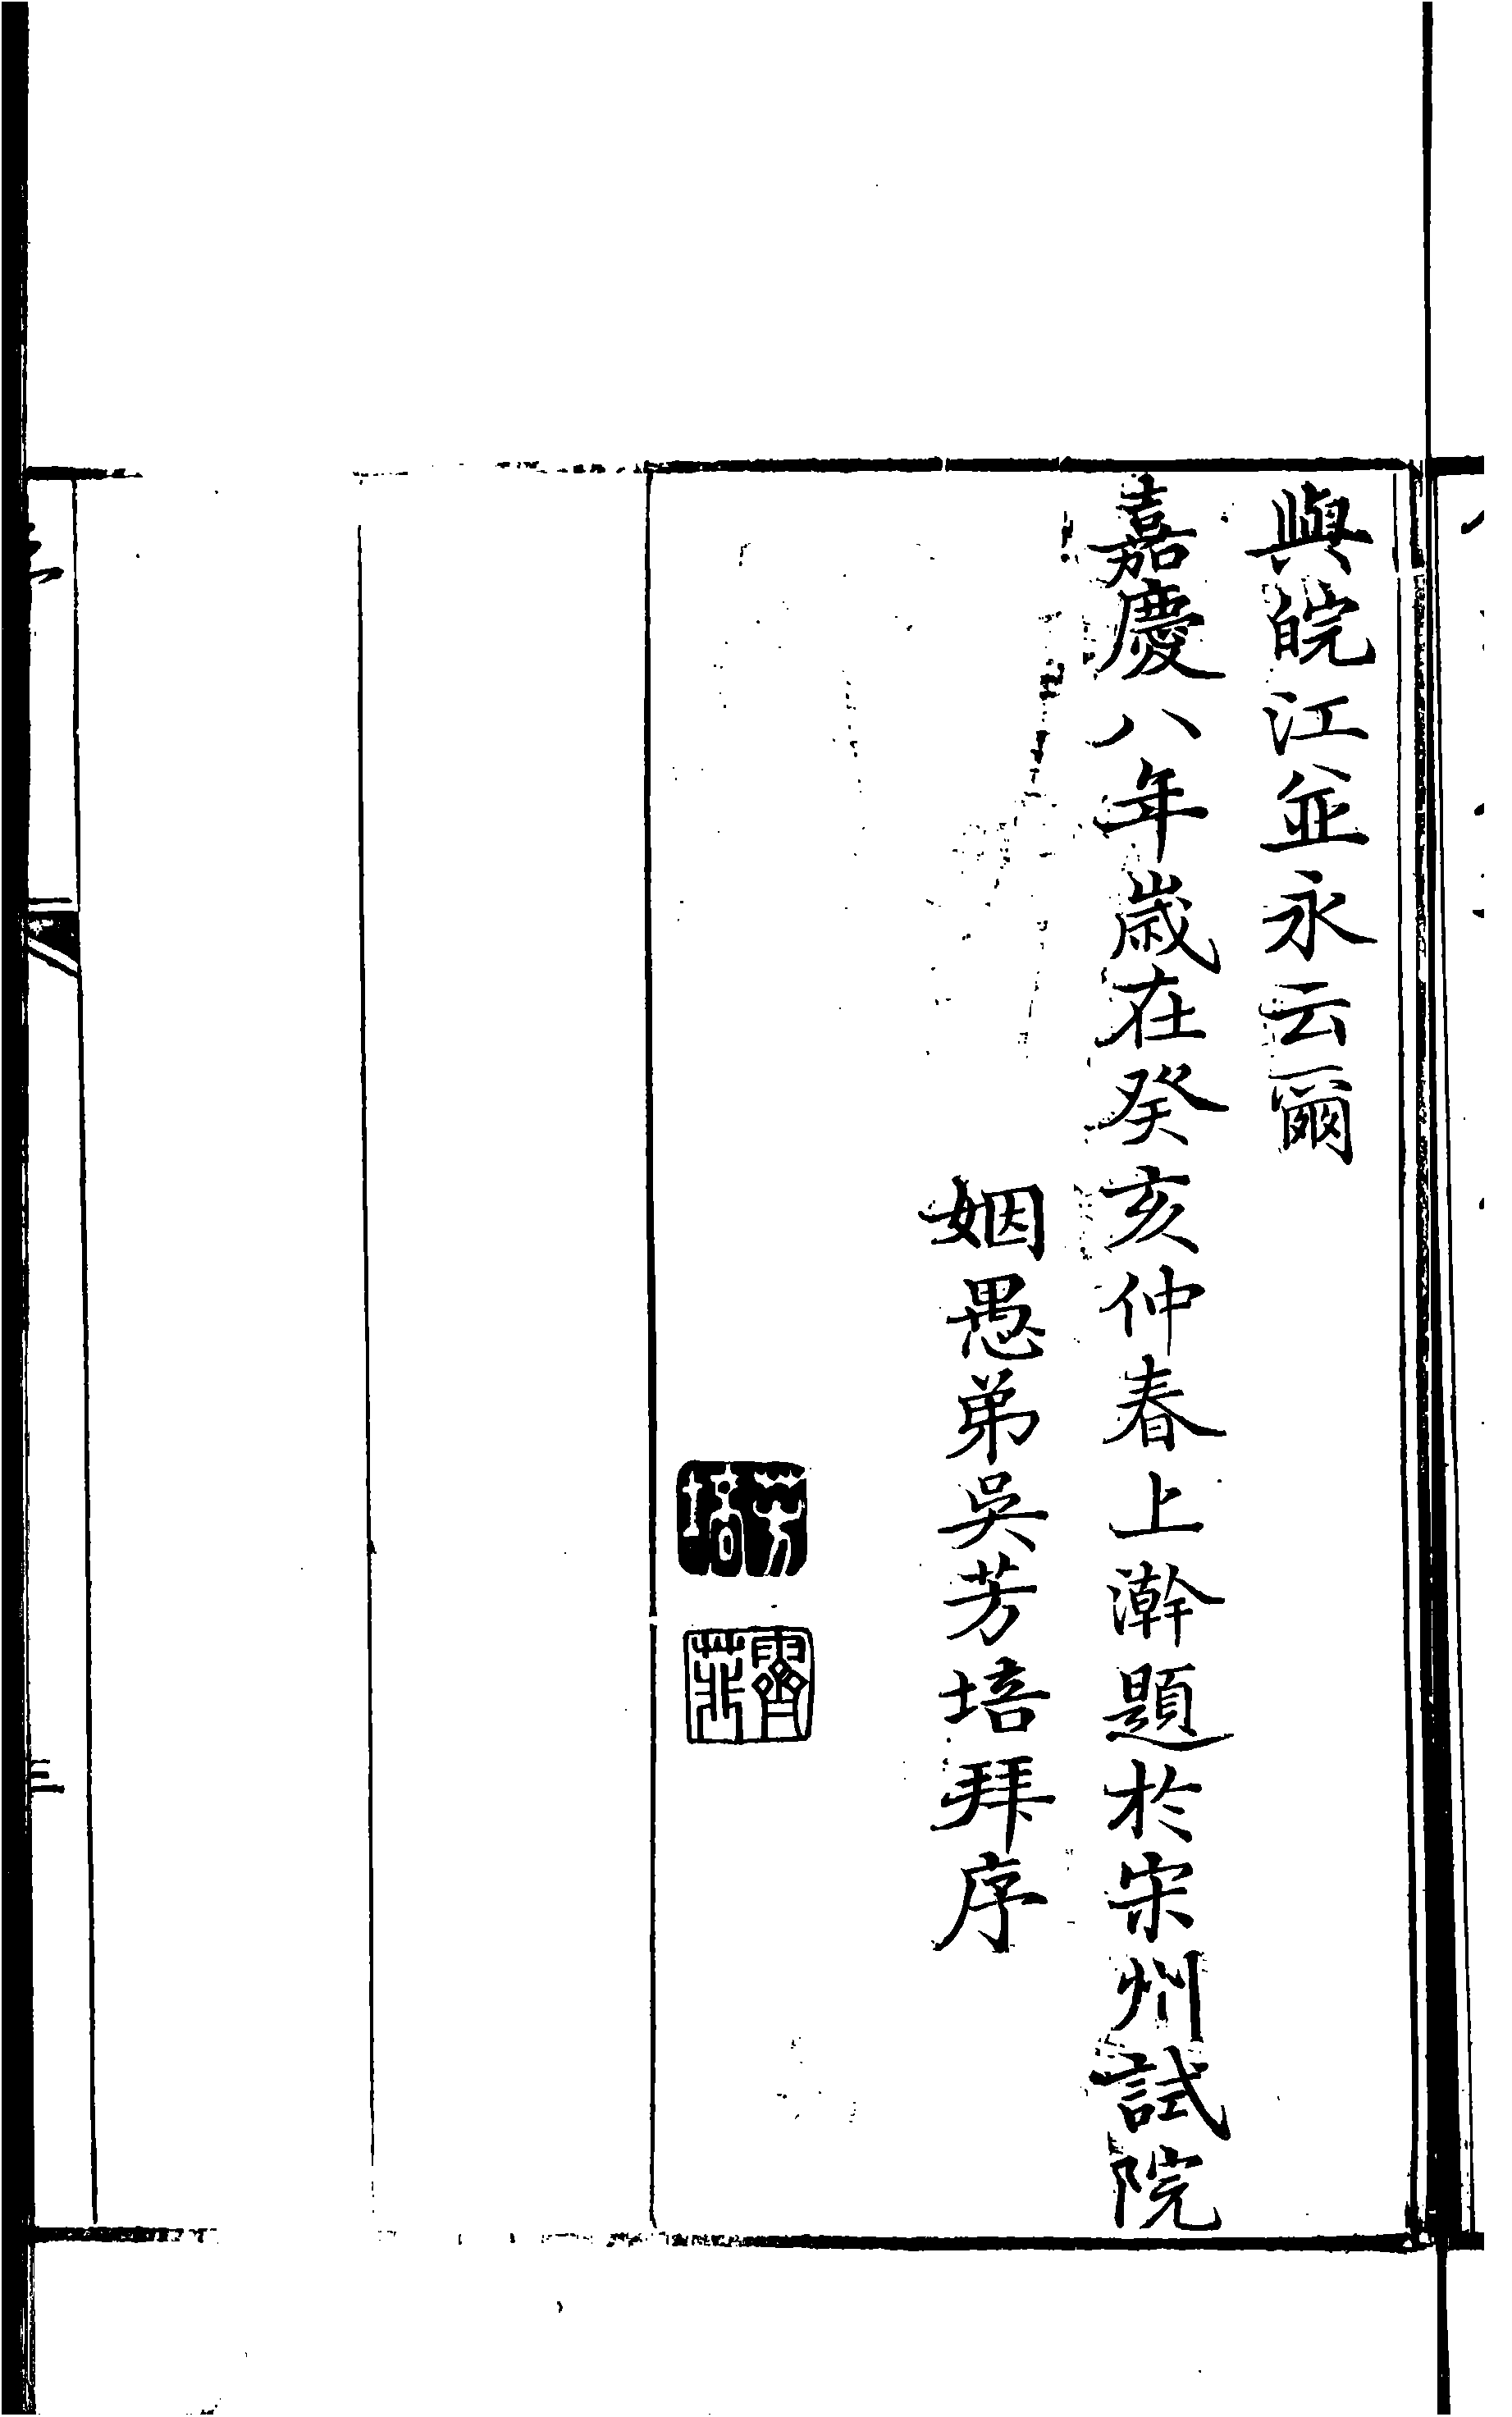 與皖江並永云爾
嘉慶八年歲在癸亥仲春上澣題於宋州試院
姻愚弟吳芳培拜序
芳培
霽菲
三